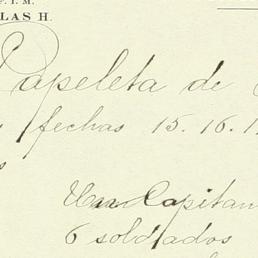 LAS H.
Papeleta de
fechas 15.16.1
Un Capitan
6 soldados